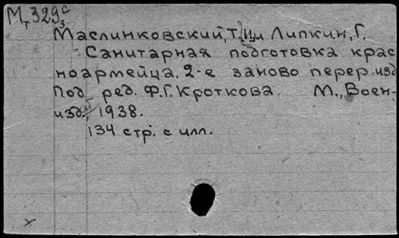 М, 329с
3
Маслинковский, Т.Ц. и Липкин, Г.
Санитарная подготовка крас-
ноармейца. 2-е заново перер. изд.
Под ред. Ф.Г. Кроткова. М., Воен-
изд., 1938.
134 стр. с илл.
x